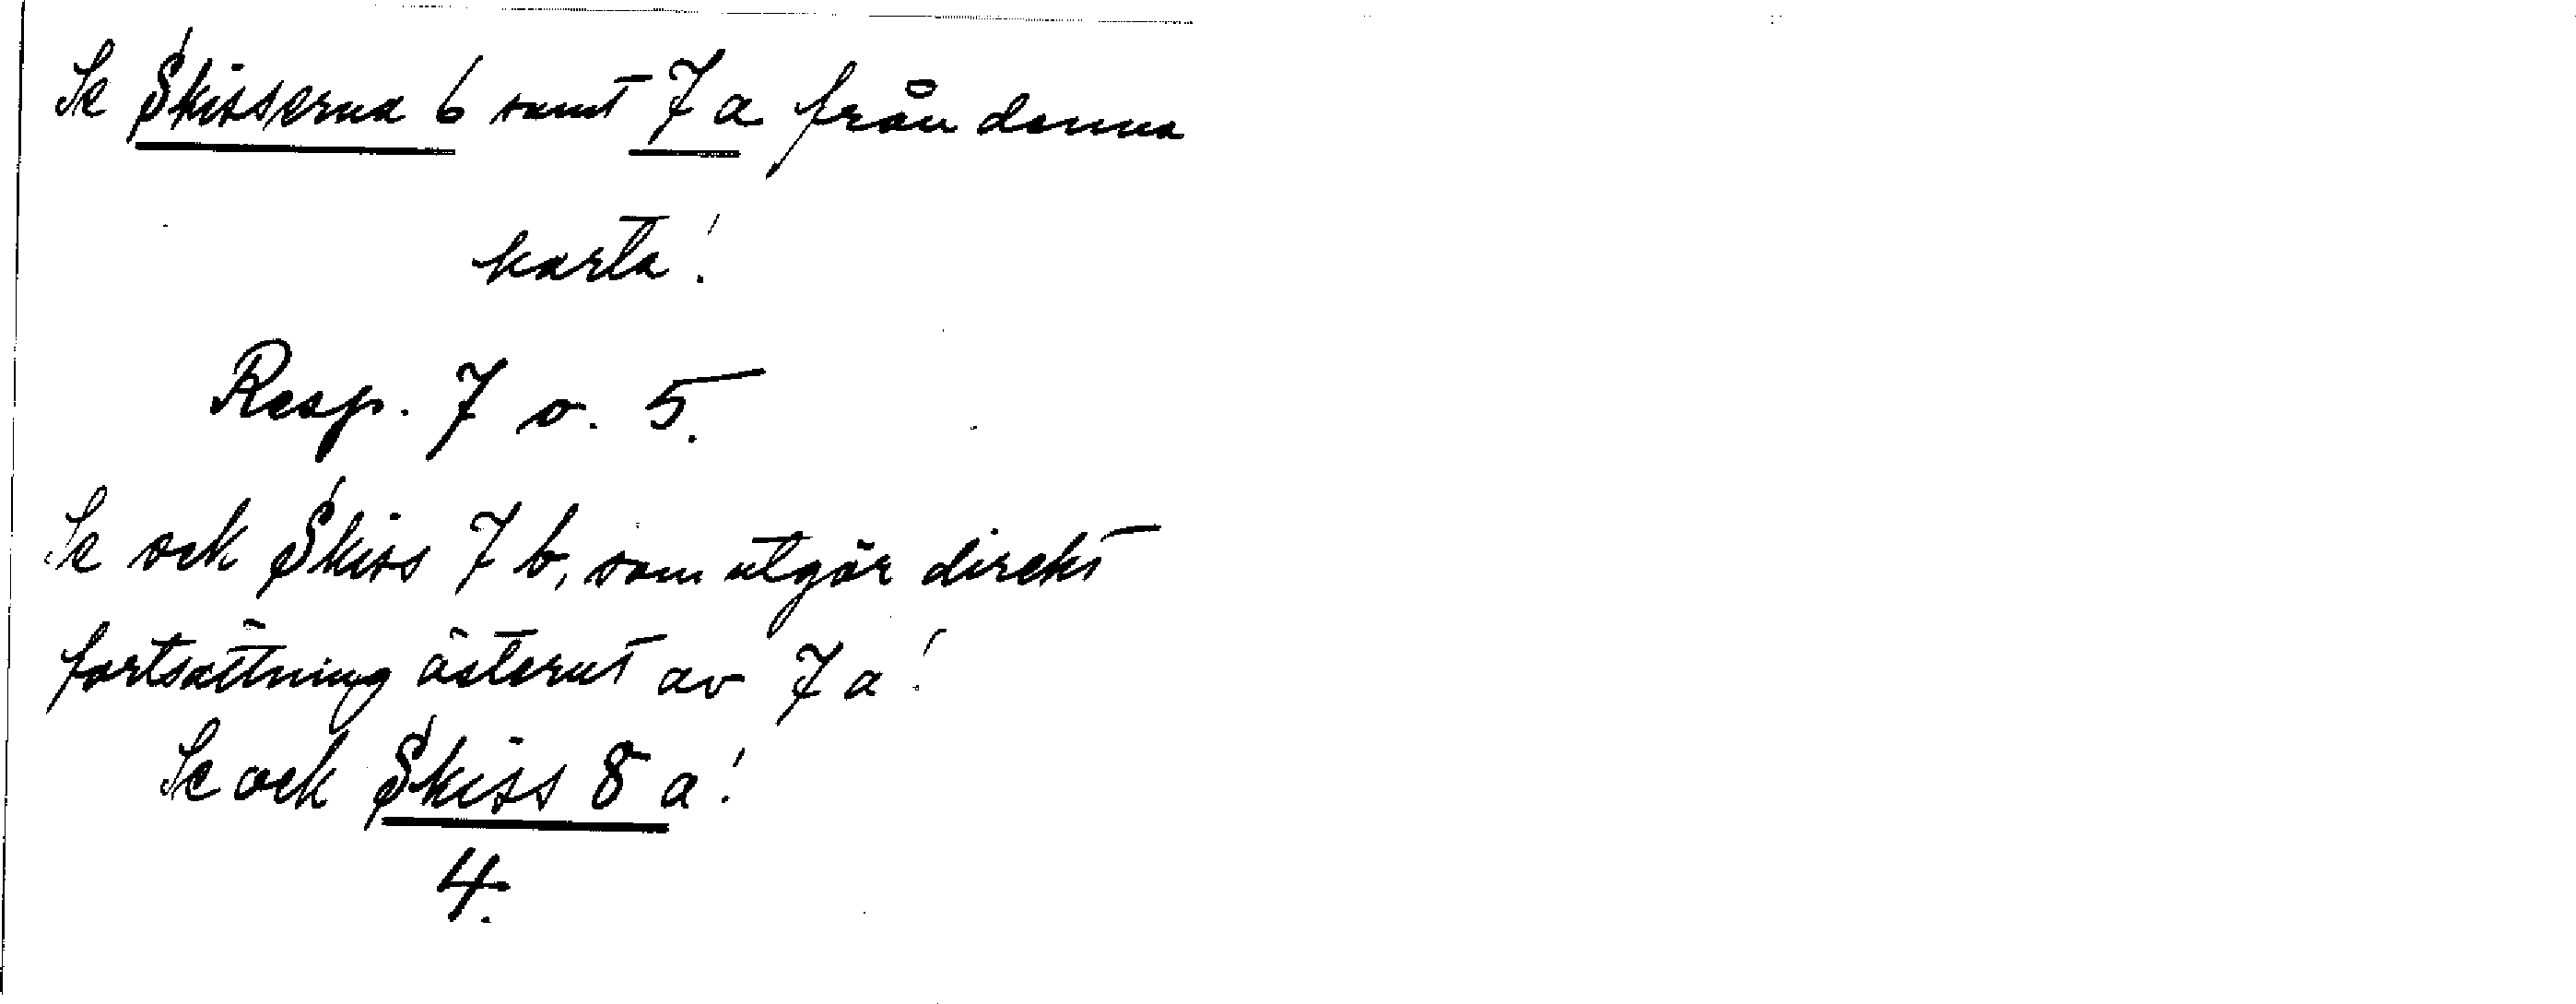 Se Skisserna 6 samt 7 a från denna
karta!
Resp. 7 o. 5.
Se ock Skiss 7 b, som utgör direkt
fortsättning österut av 7 a!
Se ock Skiss 8 a!
4.